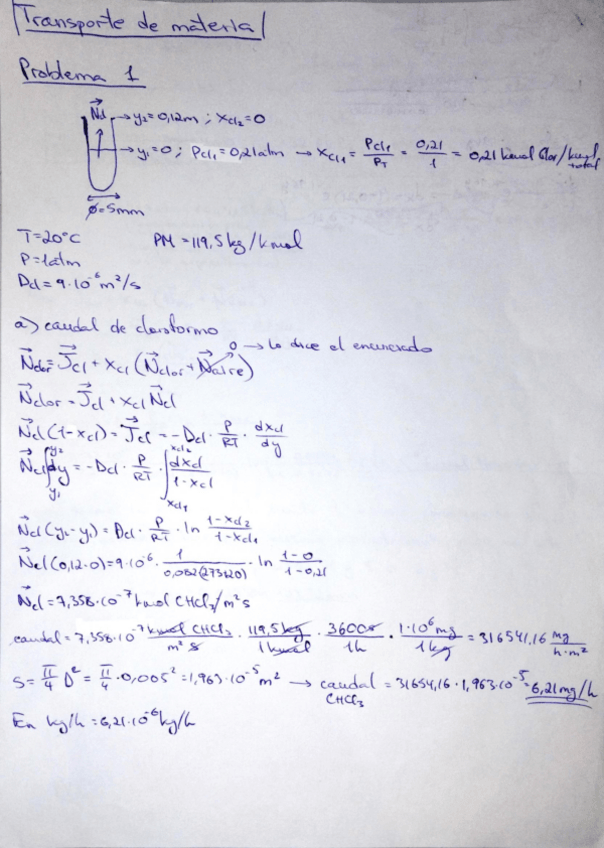 Transporte de materia
Problema 1
N⃗cl → y₂=0,12m ; Xcl₂=0
→ y₁=0 ; Pcl₁=0,21atm → Xcl₁ = Pcl₁/PT = 0,21/1 = 0,21 kmol Clor/kmol total
φ=5mm
T=20°C PM=119,5 kg/kmol
P=1atm
Dcl=9·10⁻⁶ m²/s
a) caudal de cloroformo
N⃗clor = J⃗cl + Xcl (N⃗clor + N⃗aire) 0 → lo dice el enunciado
N⃗clor = J⃗cl + Xcl N⃗cl
N⃗cl (1-Xcl) = J⃗cl = -Dcl · P/RT · dXcl/dy
N⃗cl ∫y₁^y₂ dy = -Dcl · P/RT · ∫Xcl₁^Xcl₂ dXcl/1-Xcl
N⃗cl (y₂-y₁) = Dcl · P/RT · ln 1-Xcl₂/1-Xcl₁
N⃗cl (0,12-0) = 9·10⁻⁶ · 1/0,082(273+20) · ln 1-0/1-0,21
N⃗cl = 7,358·10⁻⁷ kmol CHCl₃/m²s
caudal = 7,358·10⁻⁷ kmol CHCl₃/m² s · 119,5 kg/1 kmol · 3600s/1h · 1·10⁶ mg/1 kg = 316541,16 mg/h·m²
S = π/4 D² = π/4 · 0,005² = 1,963·10⁻⁵ m² → caudal CHCl₃ = 31654,16 · 1,963·10⁻⁵ = 6,21 mg/h
En kg/h = 6,21·10⁻⁶ kg/h